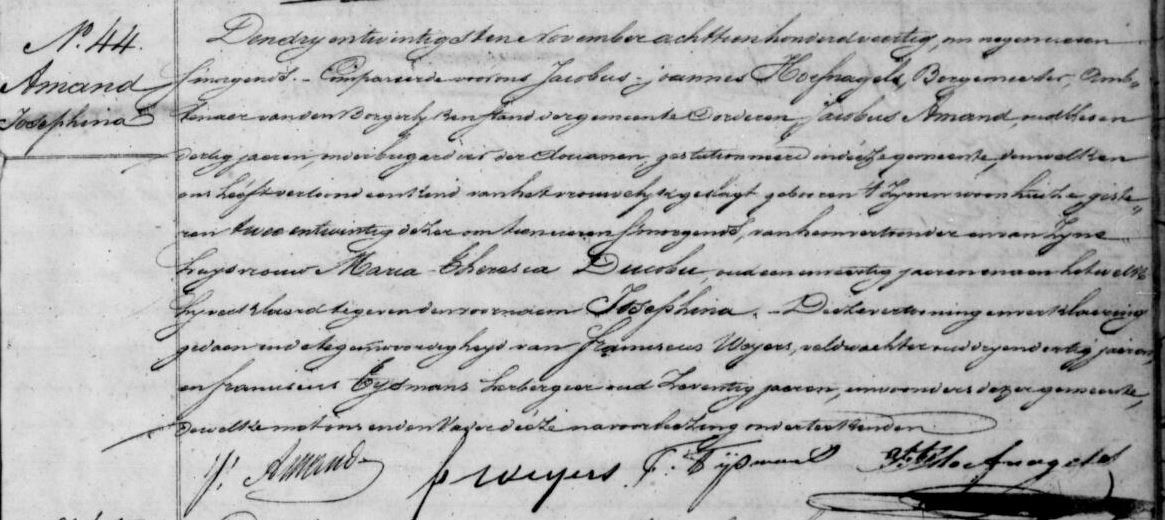 N.º 44.
Amand
Josephina
Den dry entwintigsten November achttien honderd veertig, om negen uren
smorgends. - Compareerde voor ons Jacobus - joannes Hoefnagels, Borgemeester, Amb-
tenaer van den Borgerlyken stand der gemeente Oorderen Jacobus Amand, oud
dertig jaeren, onderbrigardier der douanen, gestationneerd in deze gemeente, denwelken
ons heeft vertoond een kind van het vrouwelyk geslagt geboren t zynen woonhuize giste-
ren twee entwintig dezer om tien uren smorgends, van hem vertoonder en van zyne
huysvrouw Maria - Theresia Ducobu, oud een en veertig jaeren en aen het welk
hy verklaerd te geven den voornaem Josephina. - Deze vertooning en verklaering
gedaen in de tegenwoordigheyd van franciscus Weyers, veldwachter oud dry en dertig jaeren,
en franciscus Tysmans herbergier oud zeventig jaeren, inwoonders dezer gemeente,
dewelke met ons en den Vader deéze na voorlezing onderteekenden
J: Amand
f weyers
F. Tijsmans
J: Hoefnagels